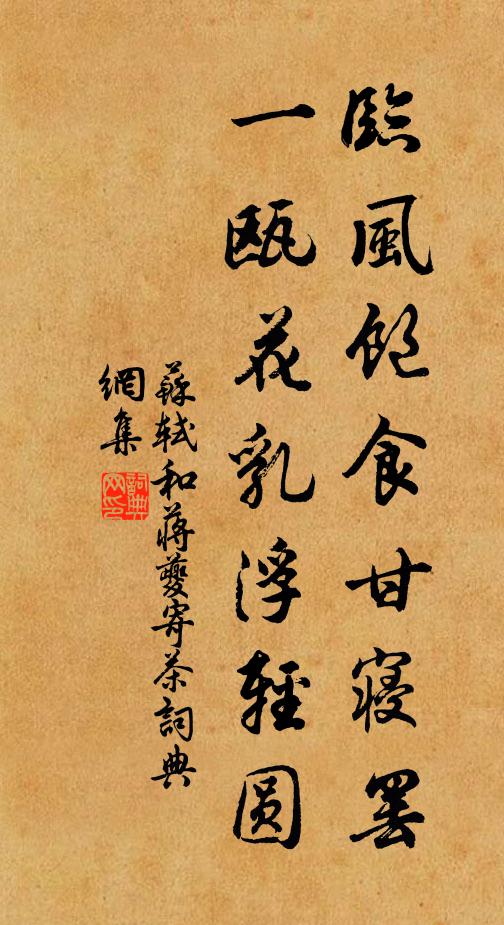 臨風飽食甘寢罷
一甌花乳浮輕圆
蘇軾和蔣夔寄茶詞典
網集
詞典
网印